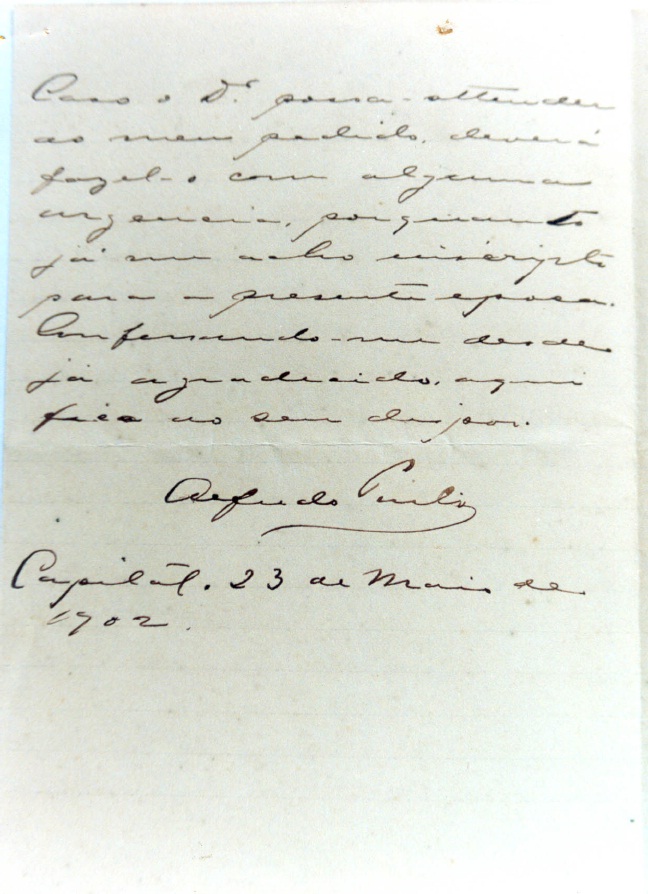 Caso o Dr. possa attender
ao meu pedido, deverá
fazel-o com alguma
urgencia, porquanto
já me acho inscripto
para a presente epoca.
Confessando-me desde
já agradecido, aqui
fica ao seu dispor.
Alfredo Pinto
Capital, 23 de Maio de
1902.